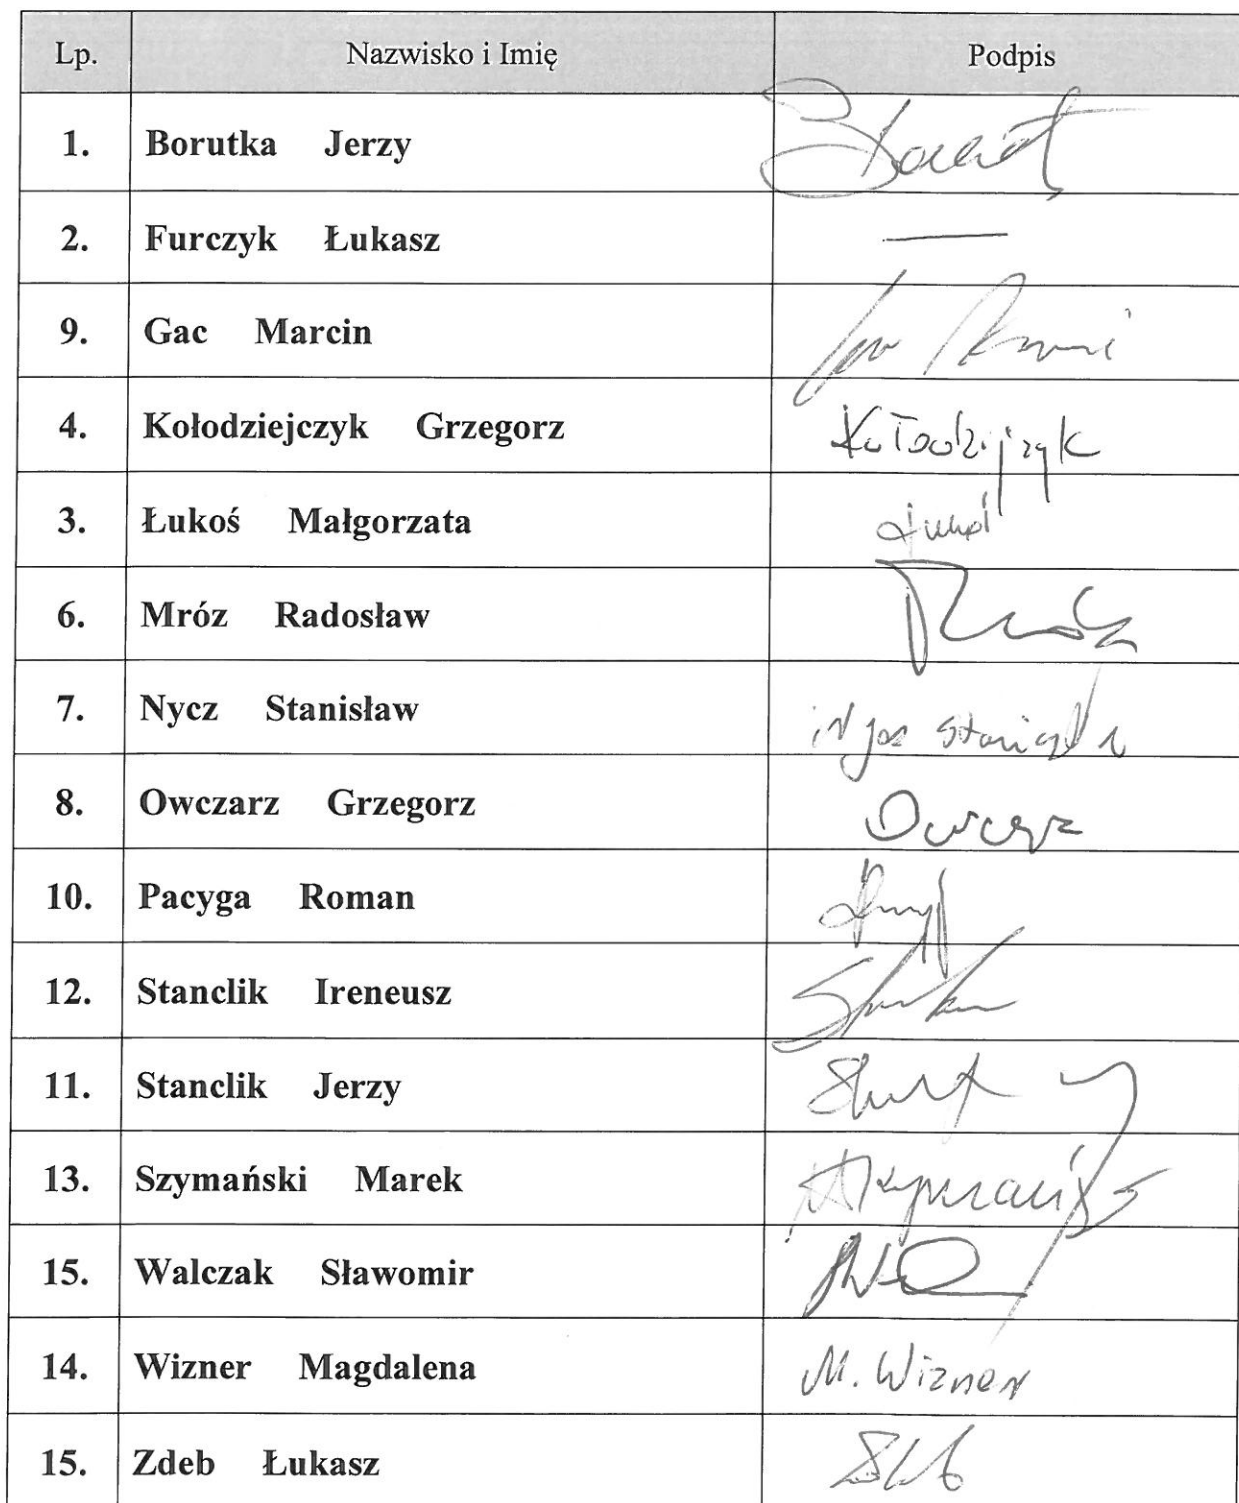 Lp. Nazwisko i Imię Podpis
1. Borutka Jerzy
2. Furczyk Łukasz —
9. Gac Marcin
4. Kołodziejczyk Grzegorz Kołodziejczyk
3. Łukoś Małgorzata
6. Mróz Radosław Mróz
7. Nycz Stanisław
8. Owczarz Grzegorz
10. Pacyga Roman
12. Stanclik Ireneusz
11. Stanclik Jerzy
13. Szymański Marek
15. Walczak Sławomir
14. Wizner Magdalena M. Wizner
15. Zdeb Łukasz